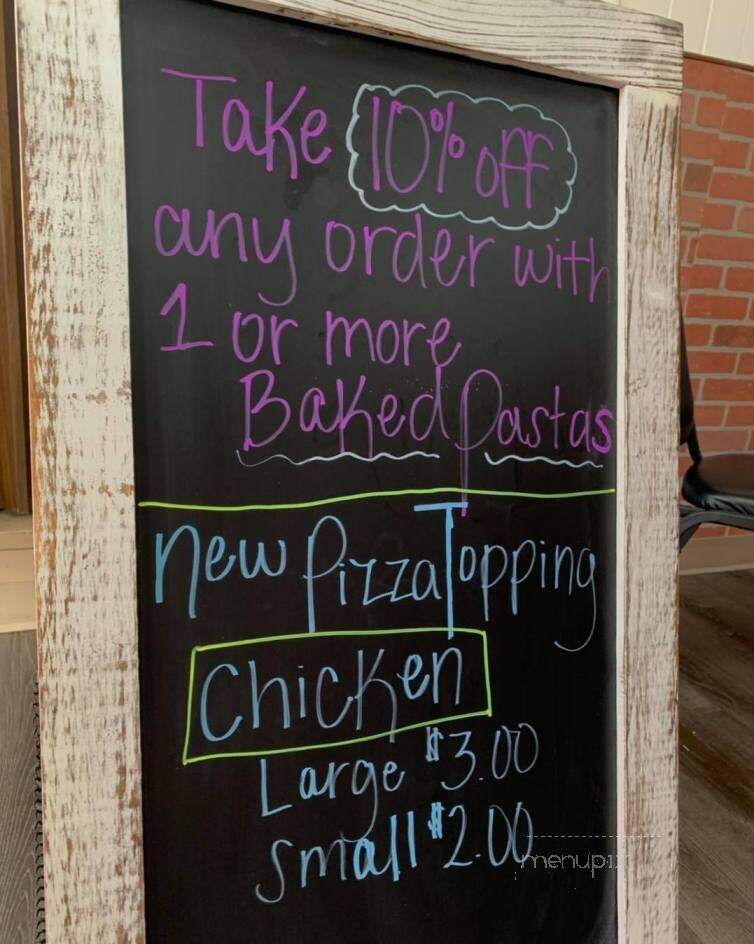 Take 10% off
any order with
1 or more
Baked Pastas
new Pizza Topping
Chicken
Large $3.00
Small $2.00
menupix